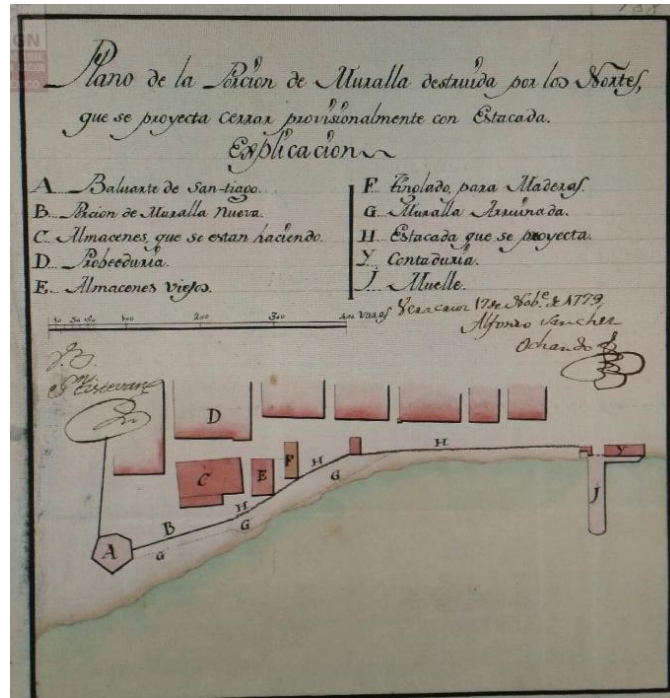 Plano de la Porcion de Muralla destruida por los Nortes,
que se proyecta cerrar provisionalmente con Estacada.
Explicacion
A Baluarte de San-tiago.
B. Porcion de Muralla Nueva.
C Almacenes, que se estan haciendo.
D Probeeduria.
E Almacenes viejos.
F tinglado, para Maderas.
G Muralla Arruinada.
H Estacada que se proyecta.
Y Contaduria.
J Muelle.
100 200 300 400 varas
Veracruz 17 de Nobe. de 1779
Alfonso Sanchez
Ochando
D
C E F H H Y
G
B H J
A G G